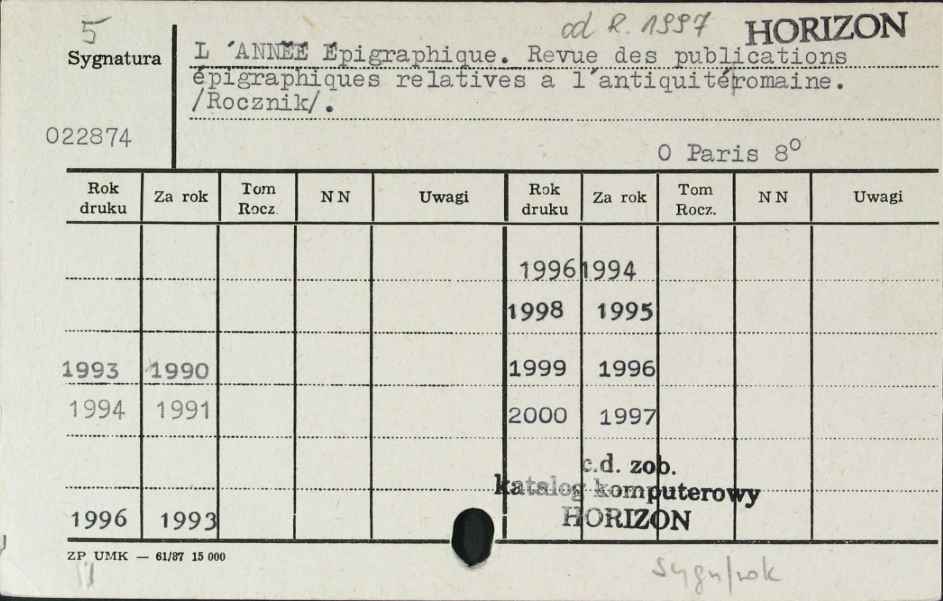 5 od R. 1997 HORIZON
Sygnatura L 'ANNÉE Epigraphique. Revue des publications
épigraphiques relatives a l'antiquité romaine.
/Rocznik/.
022874
O Paris 8°
Rok druku Za rok Tom Rocz. NN Uwagi Rok druku Za rok Tom Rocz. NN Uwagi
1996 1994
1998 1995
1993 1990 1999 1996
1994 1991 2000 1997
c.d. zob.
katalog komputerowy
1996 1993 HORIZON
ZP UMK — 61/87 15 000
sygn/rok